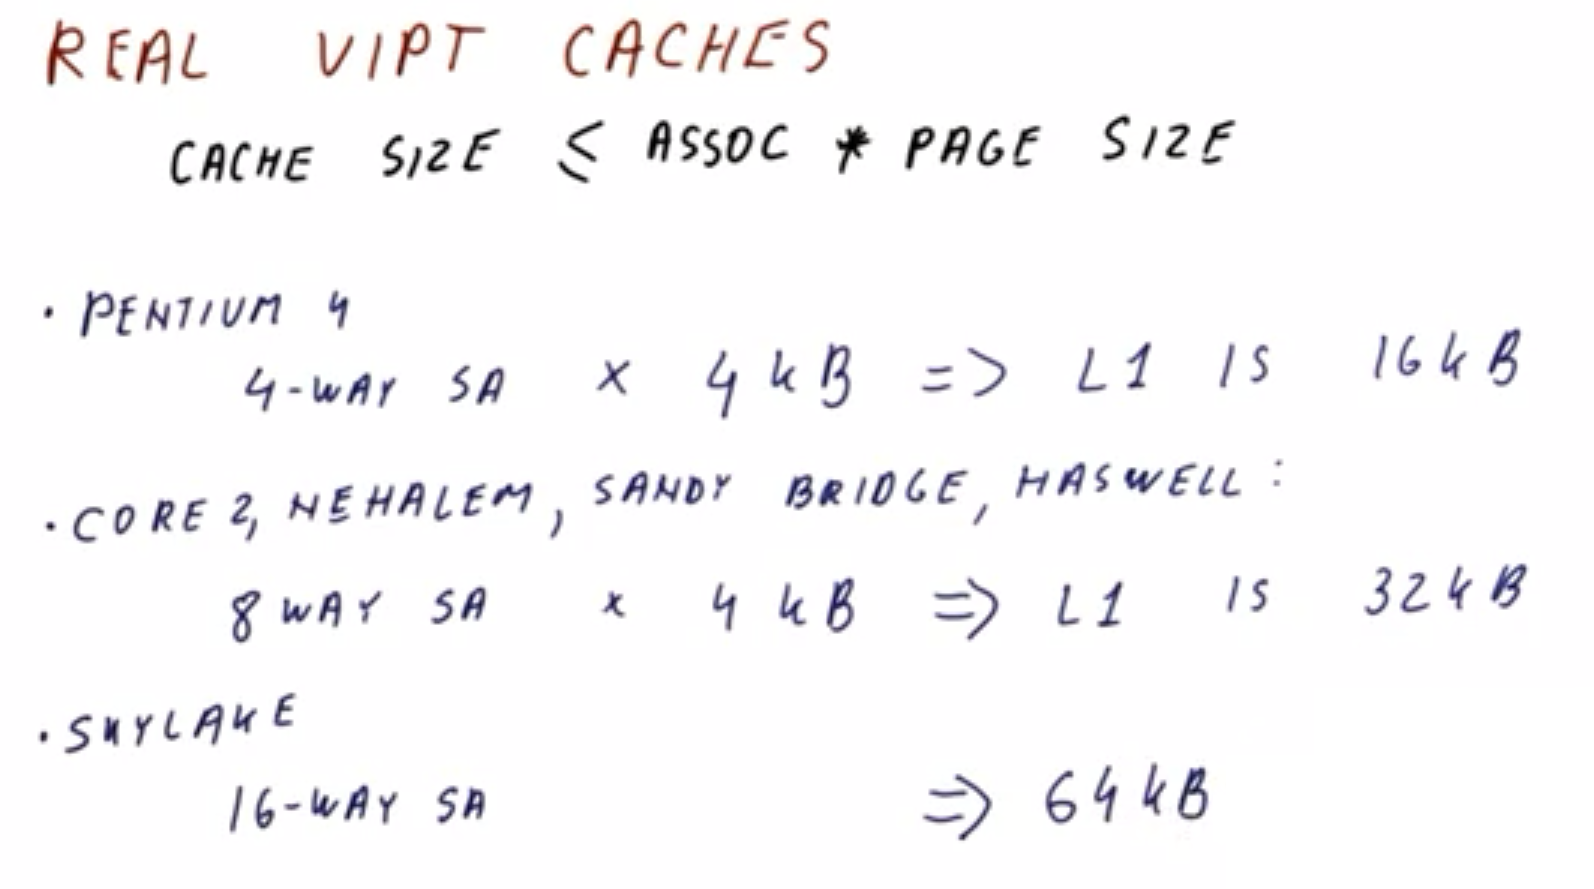 REAL VIPT CACHES
CACHE SIZE ≤ ASSOC * PAGE SIZE
· PENTIUM 4
4-WAY SA × 4 kB => L1 IS 16 kB
· CORE 2, NEHALEM, SANDY BRIDGE, HASWELL:
8 WAY SA × 4 kB => L1 IS 32 kB
· SKYLAKE
16-WAY SA => 64 kB